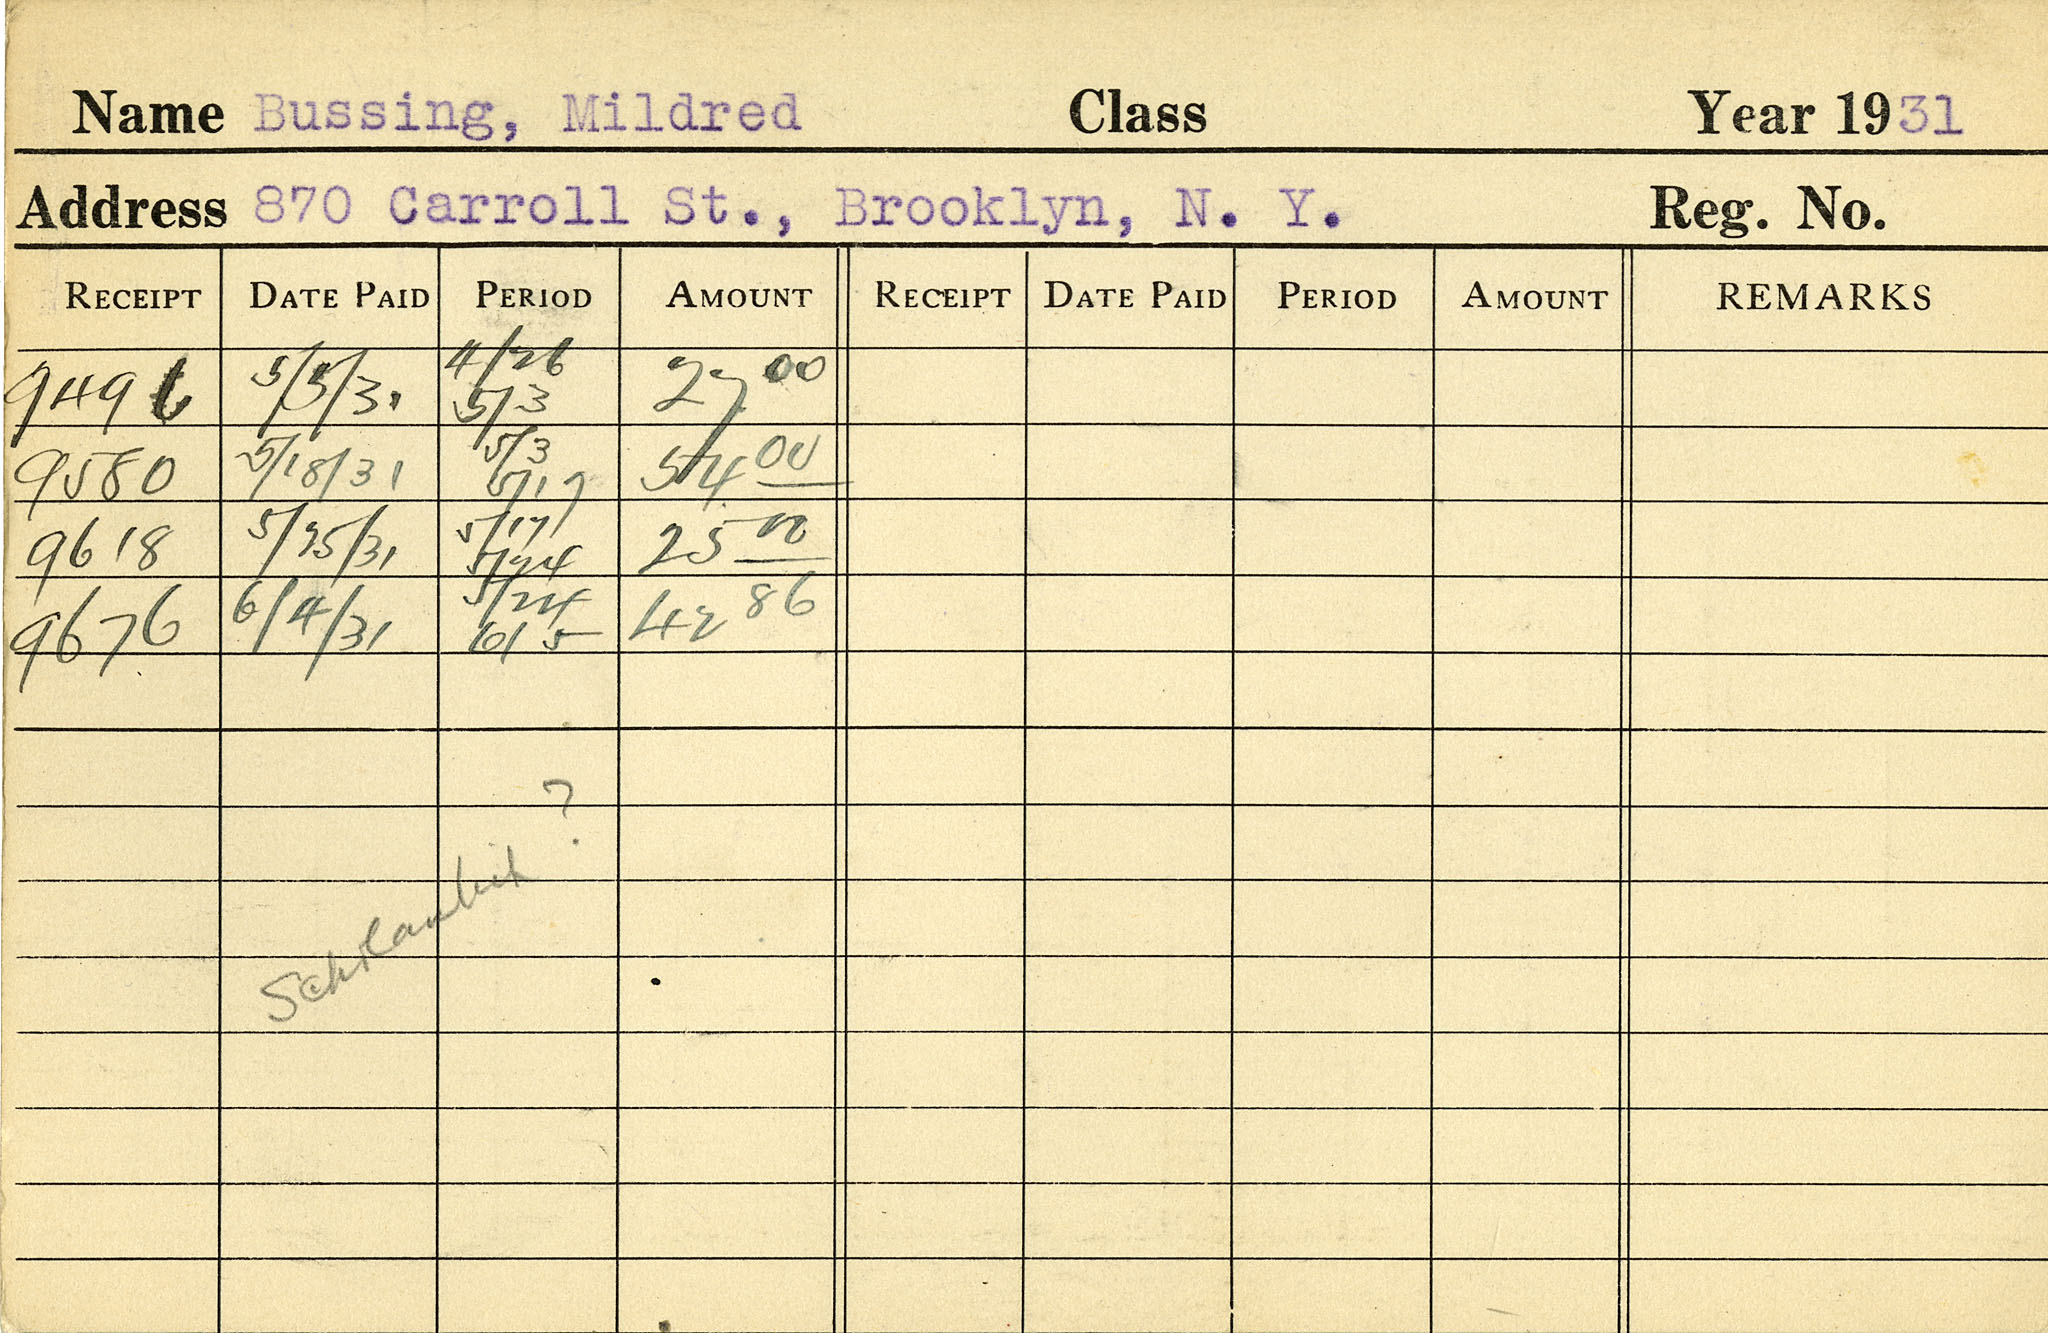 Name Bussing, Mildred Class Year 1931
Address 870 Carroll St., Brooklyn, N. Y. Reg. No.
RECEIPT DATE PAID PERIOD AMOUNT RECEIPT DATE PAID PERIOD AMOUNT REMARKS
9496 5/5/31 4/26 5/3 27 00
9580 5/18/31 5/3 5/17 54 00
9618 5/25/31 5/17 5/24 25 00
9676 6/4/31 5/24 6/5 42 86
?